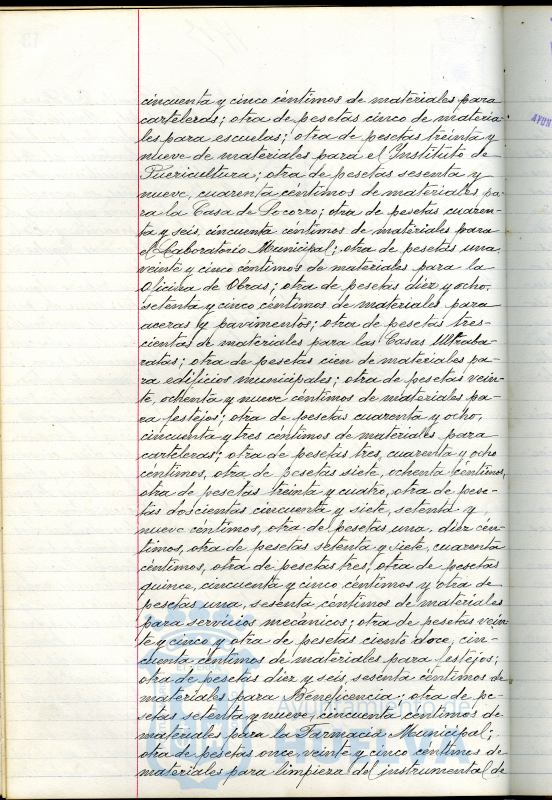 cincuenta y cinco céntimos de materiales para
carteleras; otra de pesetas cinco de materia-
les para escuelas; otra de pesetas treinta y
nueve de materiales para el Instituto de
Puericultura; otra de pesetas sesenta y
nueve, cuarenta céntimos de materiales pa-
ra la Casa de Socorro; otra de pesetas cuaren-
ta y seis, cincuenta céntimos de materiales para
el Laboratorio Municipal; otra de pesetas una,
veinte y cinco céntimos de materiales para la
Oficina de Obras; otra de pesetas diez y ocho,
setenta y cinco céntimos de materiales para
aceras y pavimentos; otra de pesetas tres-
cientas de materiales para las Casas Ultraba-
ratas; otra de pesetas cien de materiales pa-
ra edificios municipales; otra de pesetas vein-
te, ochenta y nueve céntimos de materiales pa-
ra festejos; otra de pesetas cuarenta y ocho,
cincuenta y tres céntimos de materiales para
carteleras; otra de pesetas tres, cuarenta y ocho
céntimos, otra de pesetas siete, ochenta céntimos,
otra de pesetas treinta y cuatro, otra de pese-
tas doscientas cincuenta y siete, setenta y
nueve céntimos, otra de pesetas una, diez cén-
timos, otra de pesetas setenta y siete, cuarenta
céntimos, otra de pesetas tres, otra de pesetas
quince, cincuenta y cinco céntimos y otra de
pesetas una, sesenta céntimos de materiales
para servicios mecánicos; otra de pesetas vein-
te y cinco y otra de pesetas ciento doce, cin-
cuenta céntimos de materiales para festejos;
otra de pesetas diez y seis, sesenta céntimos de
materiales para Beneficencia; otra de pe-
setas setenta y nueve, cincuenta céntimos de
materiales para la Farmacia Municipal;
otra de pesetas once, veinte y cinco céntimos de
materiales para limpieza del instrumental de
Ayuntamiento de
AYUN